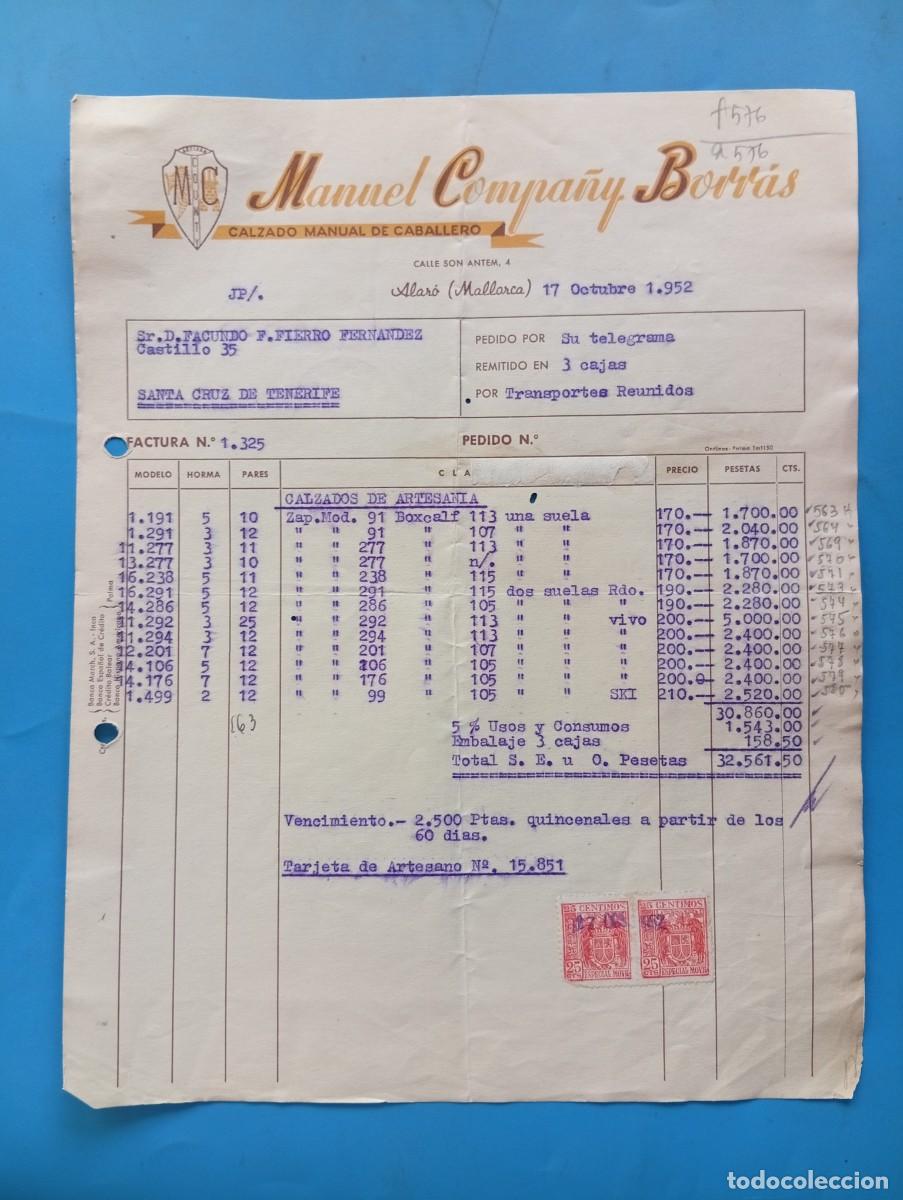 f 576
a 576
ARTISAN
M C
Manuel Company Borrás
CALZADO MANUAL DE CABALLERO
CALLE SON ANTEM, 4
JP/. Alaró (Mallorca) 17 Octubre 1.952
Sr.D.FACUNDO F.FIERRO FERNANDEZ
Castillo 35
SANTA CRUZ DE TENERIFE
PEDIDO POR Su telegrama
REMITIDO EN 3 cajas
POR Transportes Reunidos
FACTURA N.º 1.325 PEDIDO N.º
MODELO HORMA PARES CLA PRECIO PESETAS CTS.
CALZADOS DE ARTESANIA
1.191 5 10 Zap.Mod. 91 Boxcalf 113 una suela 170.— 1.700.00 563
1.291 3 12 " " 91 " 107 " " 170.— 2.040.00 564
11.277 3 11 " " 277 " 113 " " 170.— 1.870.00 569
13.277 3 10 " " 277 " n/. " " 170.— 1.700.00 570
16.238 5 11 " " 238 " 115 " " 170.— 1.870.00 571
16.291 5 12 " " 291 " 115 dos suelas Rdo. 190.— 2.280.00
14.286 5 12 " " 286 " 105 " " " 190.— 2.280.00 574
11.292 3 25 " " 292 " 113 " " vivo 200.— 5.000.00 575
11.294 3 12 " " 294 " 113 " " " 200.— 2.400.00 576
12.201 7 12 " " 201 " 107 " " " 200.— 2.400.00 577
14.106 5 12 " " 106 " 105 " " " 200.— 2.400.00 578
14.176 7 12 " " 176 " 105 " " " 200.— 2.400.00 579
1.499 2 12 " " 99 " 105 " " SKI 210.— 2.520.00 580
163 30.860.00
5 % Usos y Consumos 1.543.00
Embalaje 3 cajas 158.50
Total S. E. u O. Pesetas 32.561.50
Vencimiento.- 2.500 Ptas. quincenales a partir de los
60 dias.
Tarjeta de Artesano Nº. 15.851
Banca March, S. A. - Inca
Banco Español de Crédito
Crédito Balear
Palma
25 CENTIMOS 25 CENTIMOS
25 CTS ESPECIAL MOVIL 25 CTS ESPECIAL MOVIL
todocoleccion